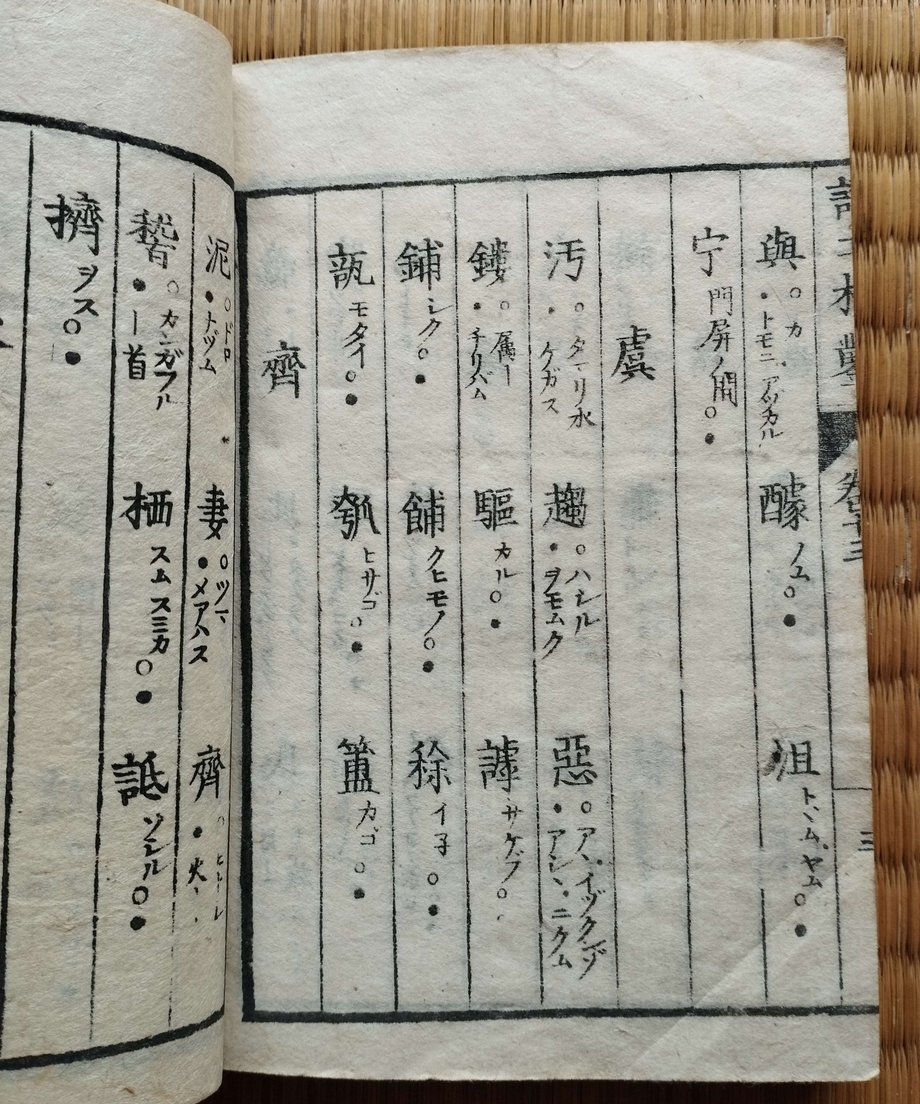 與 ○カ ●トモニ、アツカル 醵 ノユ○● 沮 トヾム、ヤム○●
宁 門屏ノ間○●
虞
汚 ○タマリ水 ●ケガス 趨 ○ハシル ●ヲモムク 惡 ○アヽ、イヅクンゾ ●アシヽ、ニクム
鏤 ○属ー ●チリバム 驅 カル○● 謼 サケブ○
鋪 シク○● 餔 クヒモノ○● 稌 イ子○●
瓿 モタイ○● 瓠 ヒサゴ○● 簠 カゴ○●
齊
泥 ○ドロ ●トヅム 妻 ○ツマ ●メアハス 齊 ○ヒトシ ●火
稽 ○カンガフル ●ー首 栖 スム スミカ○● 詆 ソシル○●
擠 ヲス○●
卷十三
三